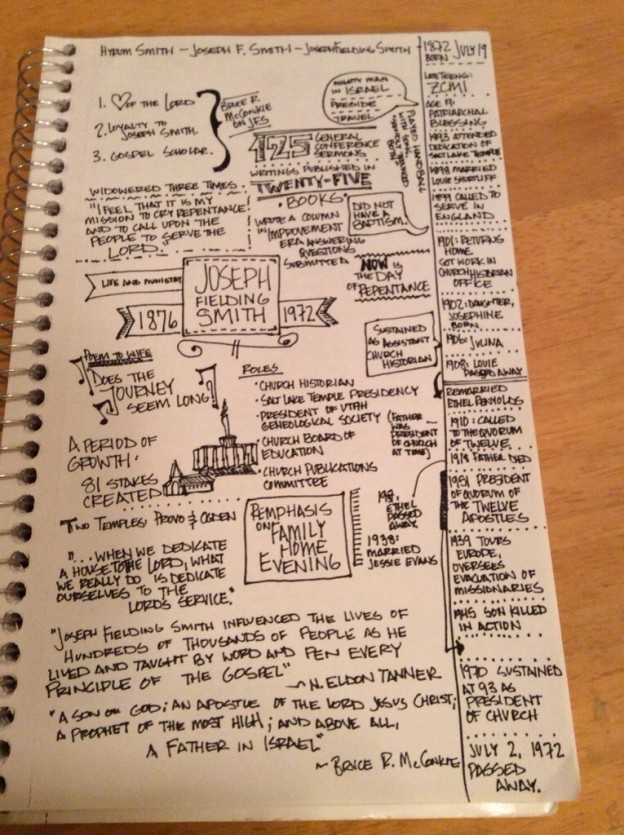 HYRUM SMITH - JOSEPH F. SMITH - JOSEPH FIELDING SMITH
1. ♡ OF THE LORD
2. LOYALTY TO
JOSEPH SMITH.
3. GOSPEL SCHOLAR.
BRUCE R.
McCONKIE
ON JFS
MIGHTY MAN
IN ISRAEL
PRESIDE
TRAVEL
PLAYED HANDBALL
WITH
BOTH
125 GENERAL
CONFERENCE
SERMONS
WRITINGS PUBLISHED IN
TWENTY-FIVE
"BOOKS"
WIDOWERED THREE TIMES.
"I FEEL THAT IT IS MY
MISSION TO CRY REPENTANCE
AND TO CALL UPON THE
PEOPLE TO SERVE THE
LORD."
WROTE A COLUMN
IN IMPROVEMENT
ERA ANSWERING
QUESTIONS
SUBMITTED
DID NOT
HAVE A
BAPTISM
NOW IS
THE DAY
OF REPENTANCE
LIFE AND MINISTRY
JOSEPH
FIELDING
SMITH
1876
1972
SUSTAINED
AS ASSISTANT
CHURCH
HISTORIAN
POEM TO WIFE
DOES THE
JOURNEY
SEEM LONG?
ROLES
• CHURCH HISTORIAN
• SALT LAKE TEMPLE PRESIDENCY
• PRESIDENT OF UTAH
GENEOLOGICAL SOCIETY
• CHURCH BOARD OF
EDUCATION
• CHURCH PUBLICATIONS
COMMITTEE
(FATHER
WAS
PRESIDENT
OF CHURCH
AT TIME)
A PERIOD OF
GROWTH:
81 STAKES
CREATED
TWO TEMPLES: PROVO & OGDEN
EMPHASIS
ON FAMILY
HOME
EVENING
ETHEL
PASSED
AWAY
1938:
MARRIED
JESSIE EVANS
"...WHEN WE DEDICATE
A HOUSE TO THE LORD, WHAT
WE REALLY DO IS DEDICATE
OURSELVES TO THE
LORD'S SERVICE."
"JOSEPH FIELDING SMITH INFLUENCED THE LIVES OF
HUNDREDS OF THOUSANDS OF PEOPLE AS HE
LIVED AND TAUGHT BY WORD AND PEN EVERY
PRINCIPLE OF THE GOSPEL"
~ N. ELDON TANNER
"A SON OF GOD; AN APOSTLE OF THE LORD JESUS CHRIST;
A PROPHET OF THE MOST HIGH; AND ABOVE ALL,
A FATHER IN ISRAEL"
~ BRUCE R. McCONKIE
1872 JULY 19
BORN
ZCMI
PATRIARCHAL
BLESSING
1893 ATTENDED
DEDICATION OF
SALT LAKE TEMPLE
1898 MARRIED
LOUIE SHURTLIFF
1899 CALLED TO
SERVE IN
ENGLAND
1901: RETURNING
HOME
GOT WORK IN
CHURCH HISTORIAN
OFFICE
1902: DAUGHTER,
JOSEPHINE
BORN.
1906: JULINA
1908: LOUIE
PASSED AWAY
REMARRIED
ETHEL REYNOLDS
1910: CALLED
TO THE QUORUM
OF TWELVE.
FATHER DIED
PRESIDENT
OF QUORUM OF
THE TWELVE
APOSTLES
1939 TOURS
EUROPE,
OVERSEES
EVACUATION OF
MISSIONARIES
1945 SON KILLED
IN ACTION
1970 SUSTAINED
AT 93 AS
PRESIDENT
OF CHURCH
JULY 2, 1972
PASSED
AWAY.